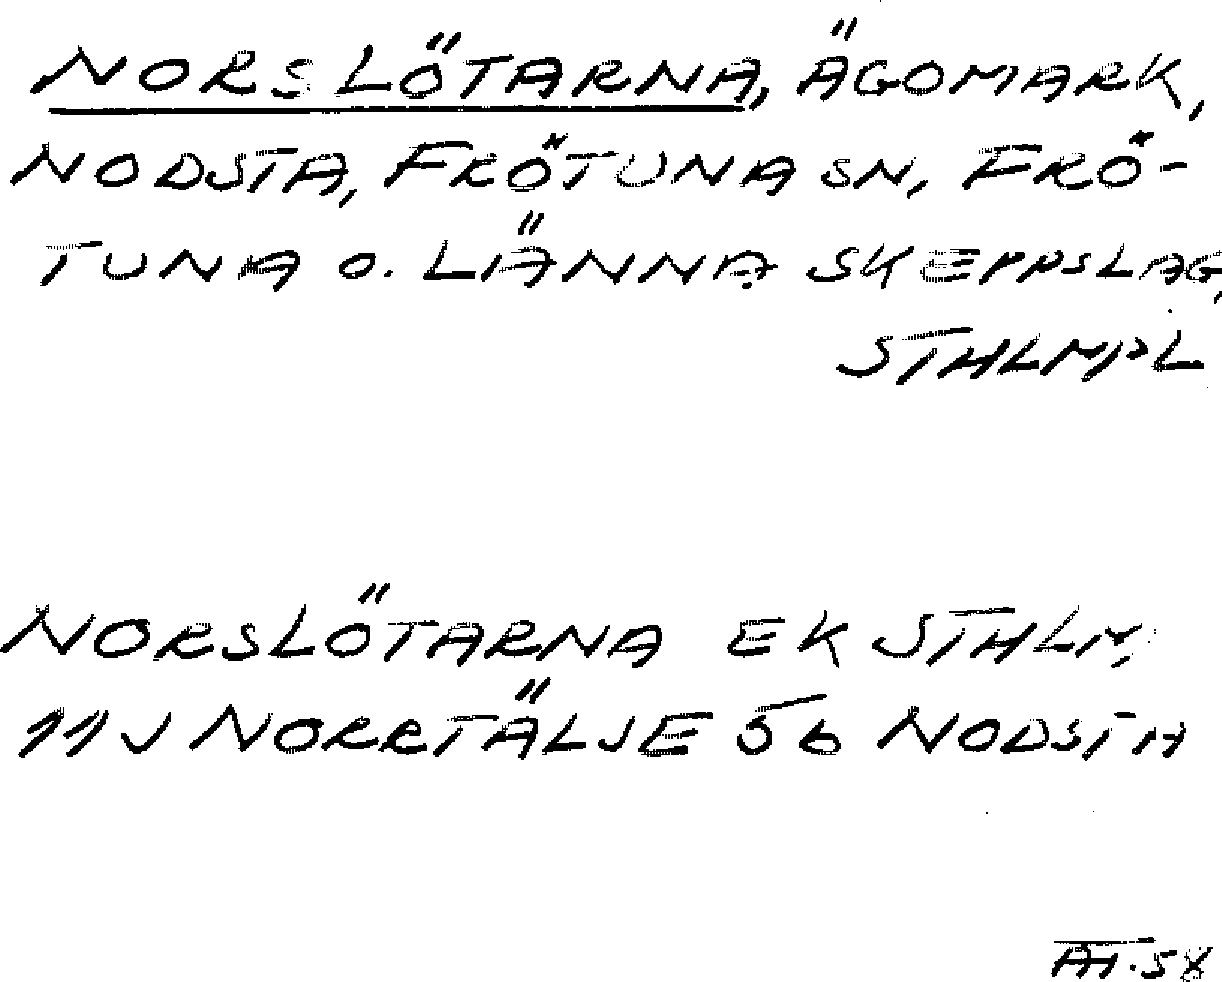 NORSLÖTARNA, ÄGOMARK,
NODSTA, FRÖTUNA SN, FRÖ-
TUNA O. LÄNNA SKEPPSLAG,
STHLMPL
NORSLÖTARNA EK STHLM,
11J NORRTÄLJE 5b NODSTA